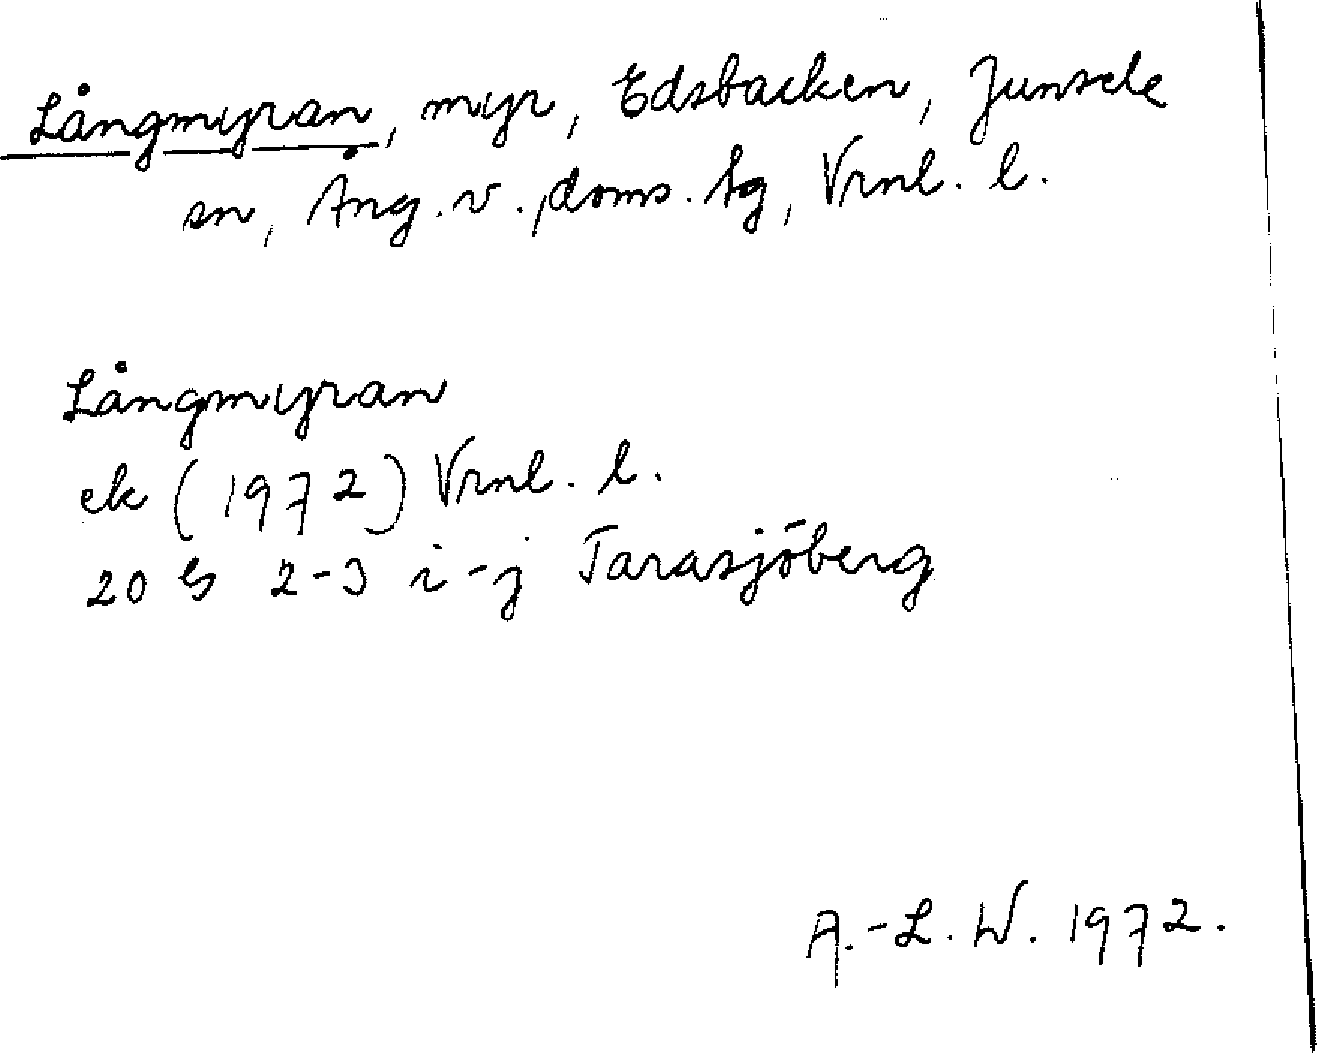 Långmyran, myr, Edsbacken, Junsele
sn, Ång. v. doms. tg, Vrnl. l.
Långmyran
ek (1972) Vrnl. l.
20 G 2-3 i-j Tarasjöberg
A.-L. W. 1972.